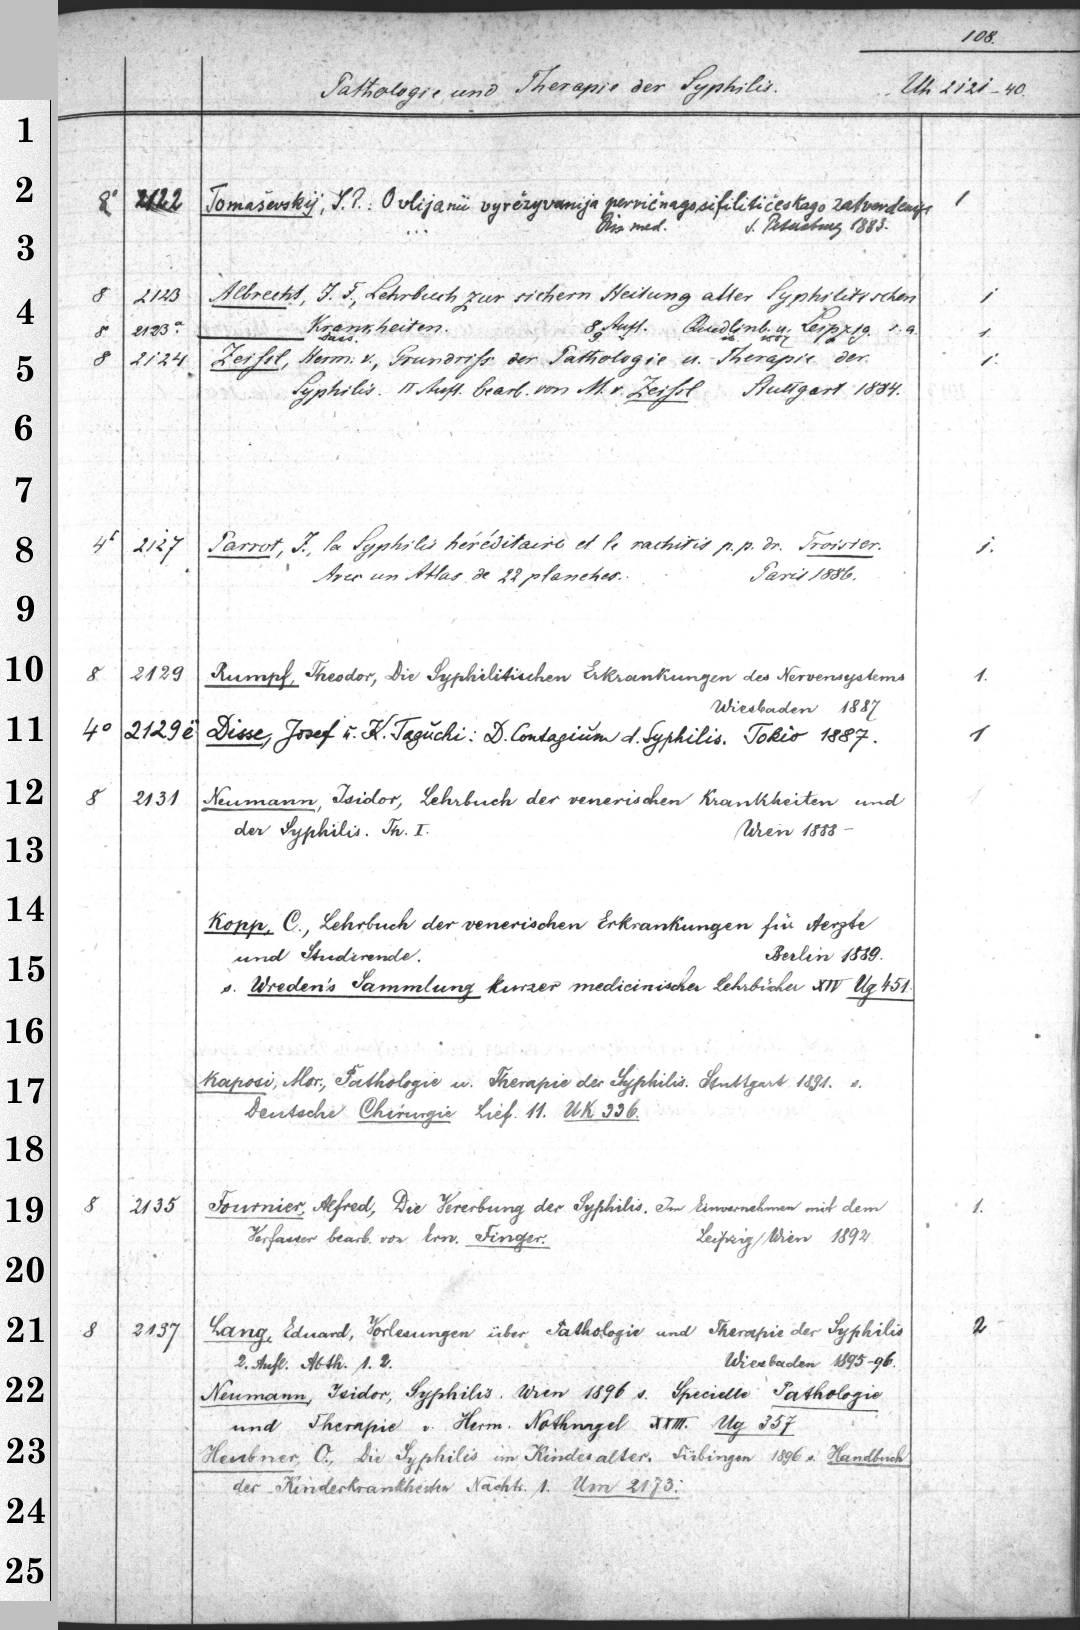 108.
Pathologie und Therapie der Syphilis. Uh 2121-40.
8° 2122 Tomaševskij, S.P.: O vlijanii vyrězyvanija pervičnago sifilitičeskago zatverdenija 1
... Diss med. S. Petersburg 1883.
8 2123 Albrecht, J. F., Lehrbuch zur sichern Heilung aller Syphilitischen 1
8 2123ª Krankheiten. 8 Aufl. Quedlinb. u. Leipzig. s. a. 1.
Dass. 9
8 2124 Zeissl, Herm. v., Grundriss der Pathologie u. Therapie der 1.
Syphilis. II Aufl. bearb. von M. v. Zeissl Stuttgart 1884.
4° 2127 Parrot, J., la Syphilis héréditaire et le rachitis p.p. dr. Troisier. 1.
Avec un Atlas de 22 planches. Paris 1886.
8 2129 Rumpf, Theodor, Die Syphilitischen Erkrankungen des Nervensystems 1.
Wiesbaden 1887
4° 2129ë Disse, Josef u. K. Taguchi: D. Contagium d. Syphilis. Tokio 1887. 1
8 2131 Neumann, Isidor, Lehrbuch der venerischen Krankheiten und 1
der Syphilis. Th. I. Wien 1888 –
Kopp, C., Lehrbuch der venerischen Erkrankungen für Aerzte
und Studirende. Berlin 1889.
s. Wreden's Sammlung kurzer medicinischer Lehrbücher XIV Ug 451.
Kaposi, Mor., Pathologie u. Therapie der Syphilis. Stuttgart 1891. s.
Deutsche Chirurgie Lief. 11. UK 336.
8 2135 Fournier, Alfred, Die Vererbung der Syphilis. Im Einvernehmen mit dem 1.
Verfasser bearb. von Ern. Finger. Leipzig/Wien 1892
8 2137 Lang, Eduard, Vorlesungen über Pathologie und Therapie der Syphilis 2
2. Aufl. Abth. 1. 2. Wiesbaden 1895-96.
Neumann, Isidor, Syphilis. Wien 1896 s. Specielle Pathologie
und Therapie v. Herm. Nothnagel XXIII. Ug 357
Heubner, O., Die Syphilis im Kindesalter. Tübingen 1896 s. Handbuch
der Kinderkrankheiten Nachtr. 1. Um 2173.
1
2
3
4
5
6
7
8
9
10
11
12
13
14
15
16
17
18
19
20
21
22
23
24
25